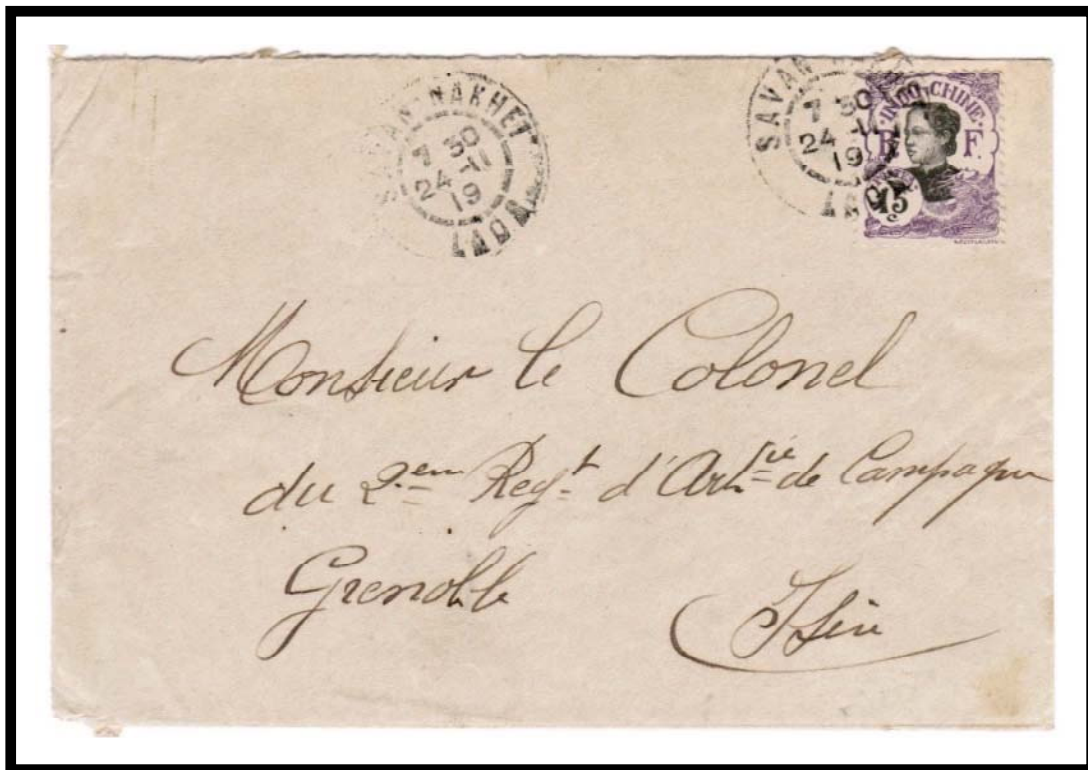 SAVANNAKHET
7 30
24 -11
19
LAOS
SAVANNAKHET
7 30
24 -11
19
LAOS
INDO-CHINE
R F
15
c
Monsieur le Colonel
du 2.em Regt d'Artie de Campagne
Grenoble
Isère